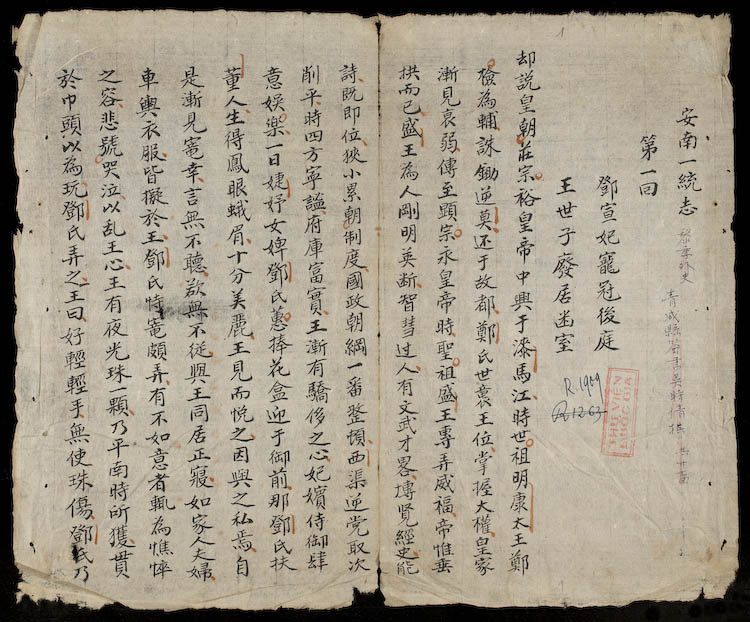 安南一統志 黎季外史
青威縣
第一回
鄧宣妃寵冠後庭
王世子廢居幽室
R.1909
R.1263
THƯ VIỆN
QUỐC GIA
却說皇朝莊宗裕皇帝中興于漆馬江時世祖明康太王鄭
檢為輔誅鋤逆莫还于故都鄭氏世襲王位掌握大權皇家
漸見衰弱傳至顕宗永皇帝時聖祖盛王專弄威福帝惟垂
拱而已盛王為人剛明英断智彗过人有文武才畧博覧經史能
詩既即位狹小累朝制度國政朝綱一番整頓西渠逆党取次
削平時四方寧謐府庫富實王漸有驕侈之心妃嬪侍御肆
意娛樂一日婕妤女婢鄧氏蕙捧花盒迎于御前那鄧氏扶
董人生得鳳眼蛾眉十分美麗王見而悅之因與之私焉自
是漸見寵幸言無不聽欲無不從與王同居正寢如家人夫婦
車輿衣服皆擬於王鄧氏恃寵頗弄有不如意者輒為憔悴
之容悲號哭泣以乱王心王有夜光珠一顆乃平南時所獲貫
於巾頭以為玩鄧氏弄之王曰好輕輕手無使珠傷鄧氏乃